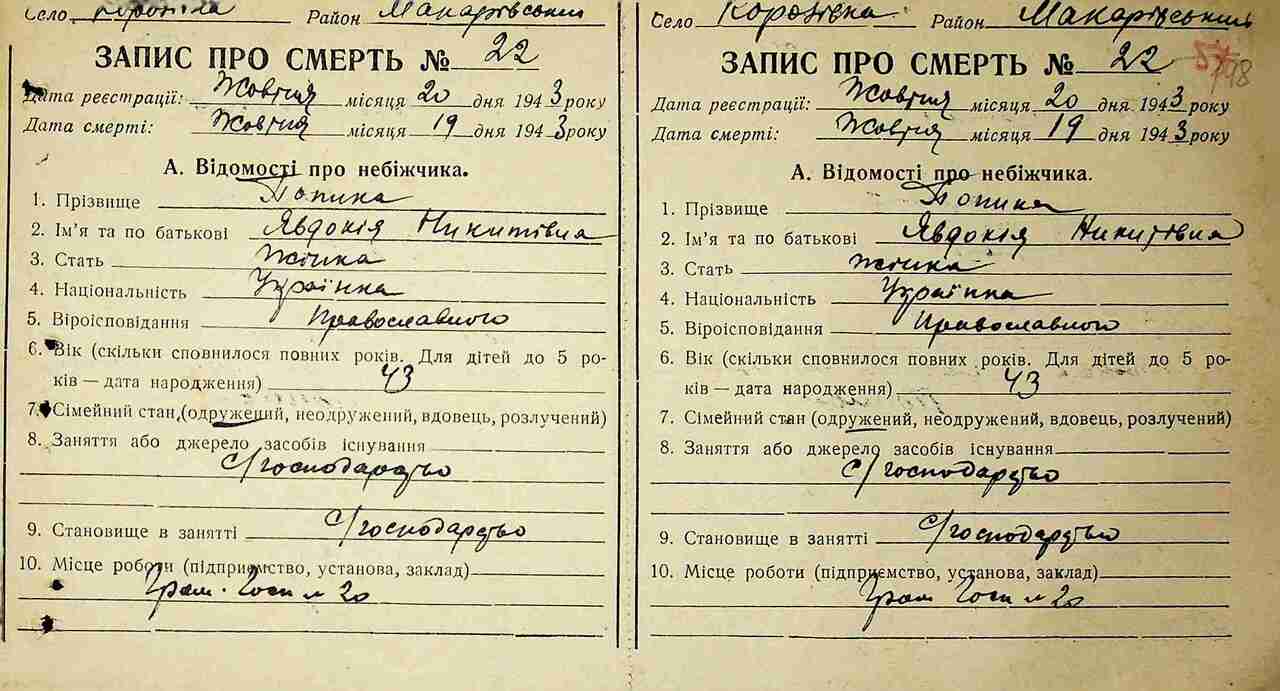 Село Королівка Район Макарівський
ЗАПИС ПРО СМЕРТЬ № 22
Дата реєстрації: Жовтня місяця 20 дня 1943 року
Дата смерті: Жовтня місяця 19 дня 1943 року
А. Відомості про небіжчика.
1. Прізвище
2. Ім'я та по батькові Явдокія Никитівна
3. Стать Жінка
4. Національність Українка
5. Віроісповідання Православного
6. Вік (скільки сповнилося повних років. Для дітей до 5 ро-
ків — дата народження) 43
7. Сімейний стан (одружений, неодружений, вдовець, розлучений)
8. Заняття або джерело засобів існування
С/господарство
9. Становище в занятті С/господарство
10. Місце роботи (підприємство, установа, заклад)
Гром. Госп № 20
Село Район Макарівський
ЗАПИС ПРО СМЕРТЬ № 22
Дата реєстрації: Жовтня місяця 20 дня 1943 року
Дата смерті: Жовтня місяця 19 дня 1943 року
А. Відомості про небіжчика.
1. Прізвище
2. Ім'я та по батькові Явдокія Никитівна
3. Стать Жінка
4. Національність Українка
5. Віроісповідання Православного
6. Вік (скільки сповнилося повних років. Для дітей до 5 ро-
ків — дата народження) 43
7. Сімейний стан (одружений, неодружений, вдовець, розлучений)
8. Заняття або джерело засобів існування
С/господарство
9. Становище в занятті С/господарство
10. Місце роботи (підприємство, установа, заклад)
Гром. Госп № 20